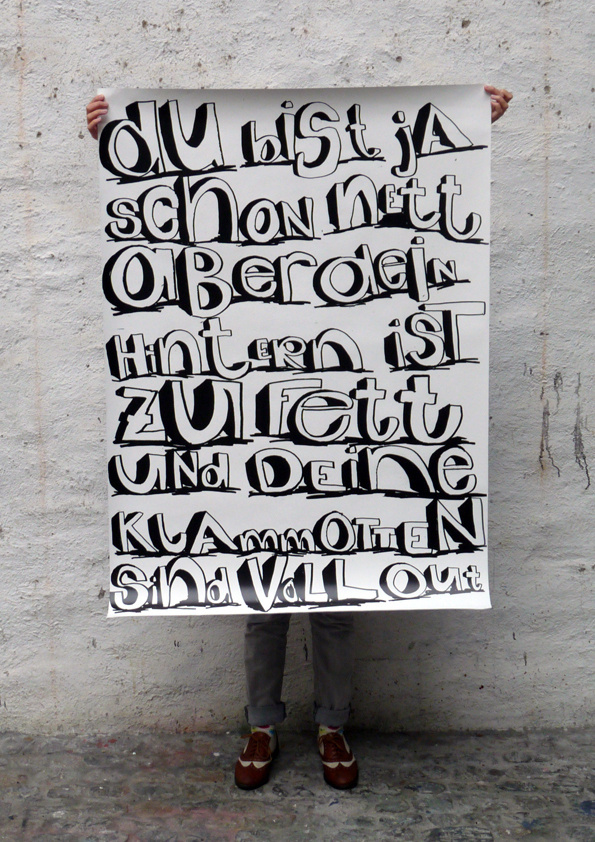 du bist jA
schon nett
aber dein
Hintern iST
ZU fett
UNd DEine
KLAmmOTTEN
Sind VOLL Out